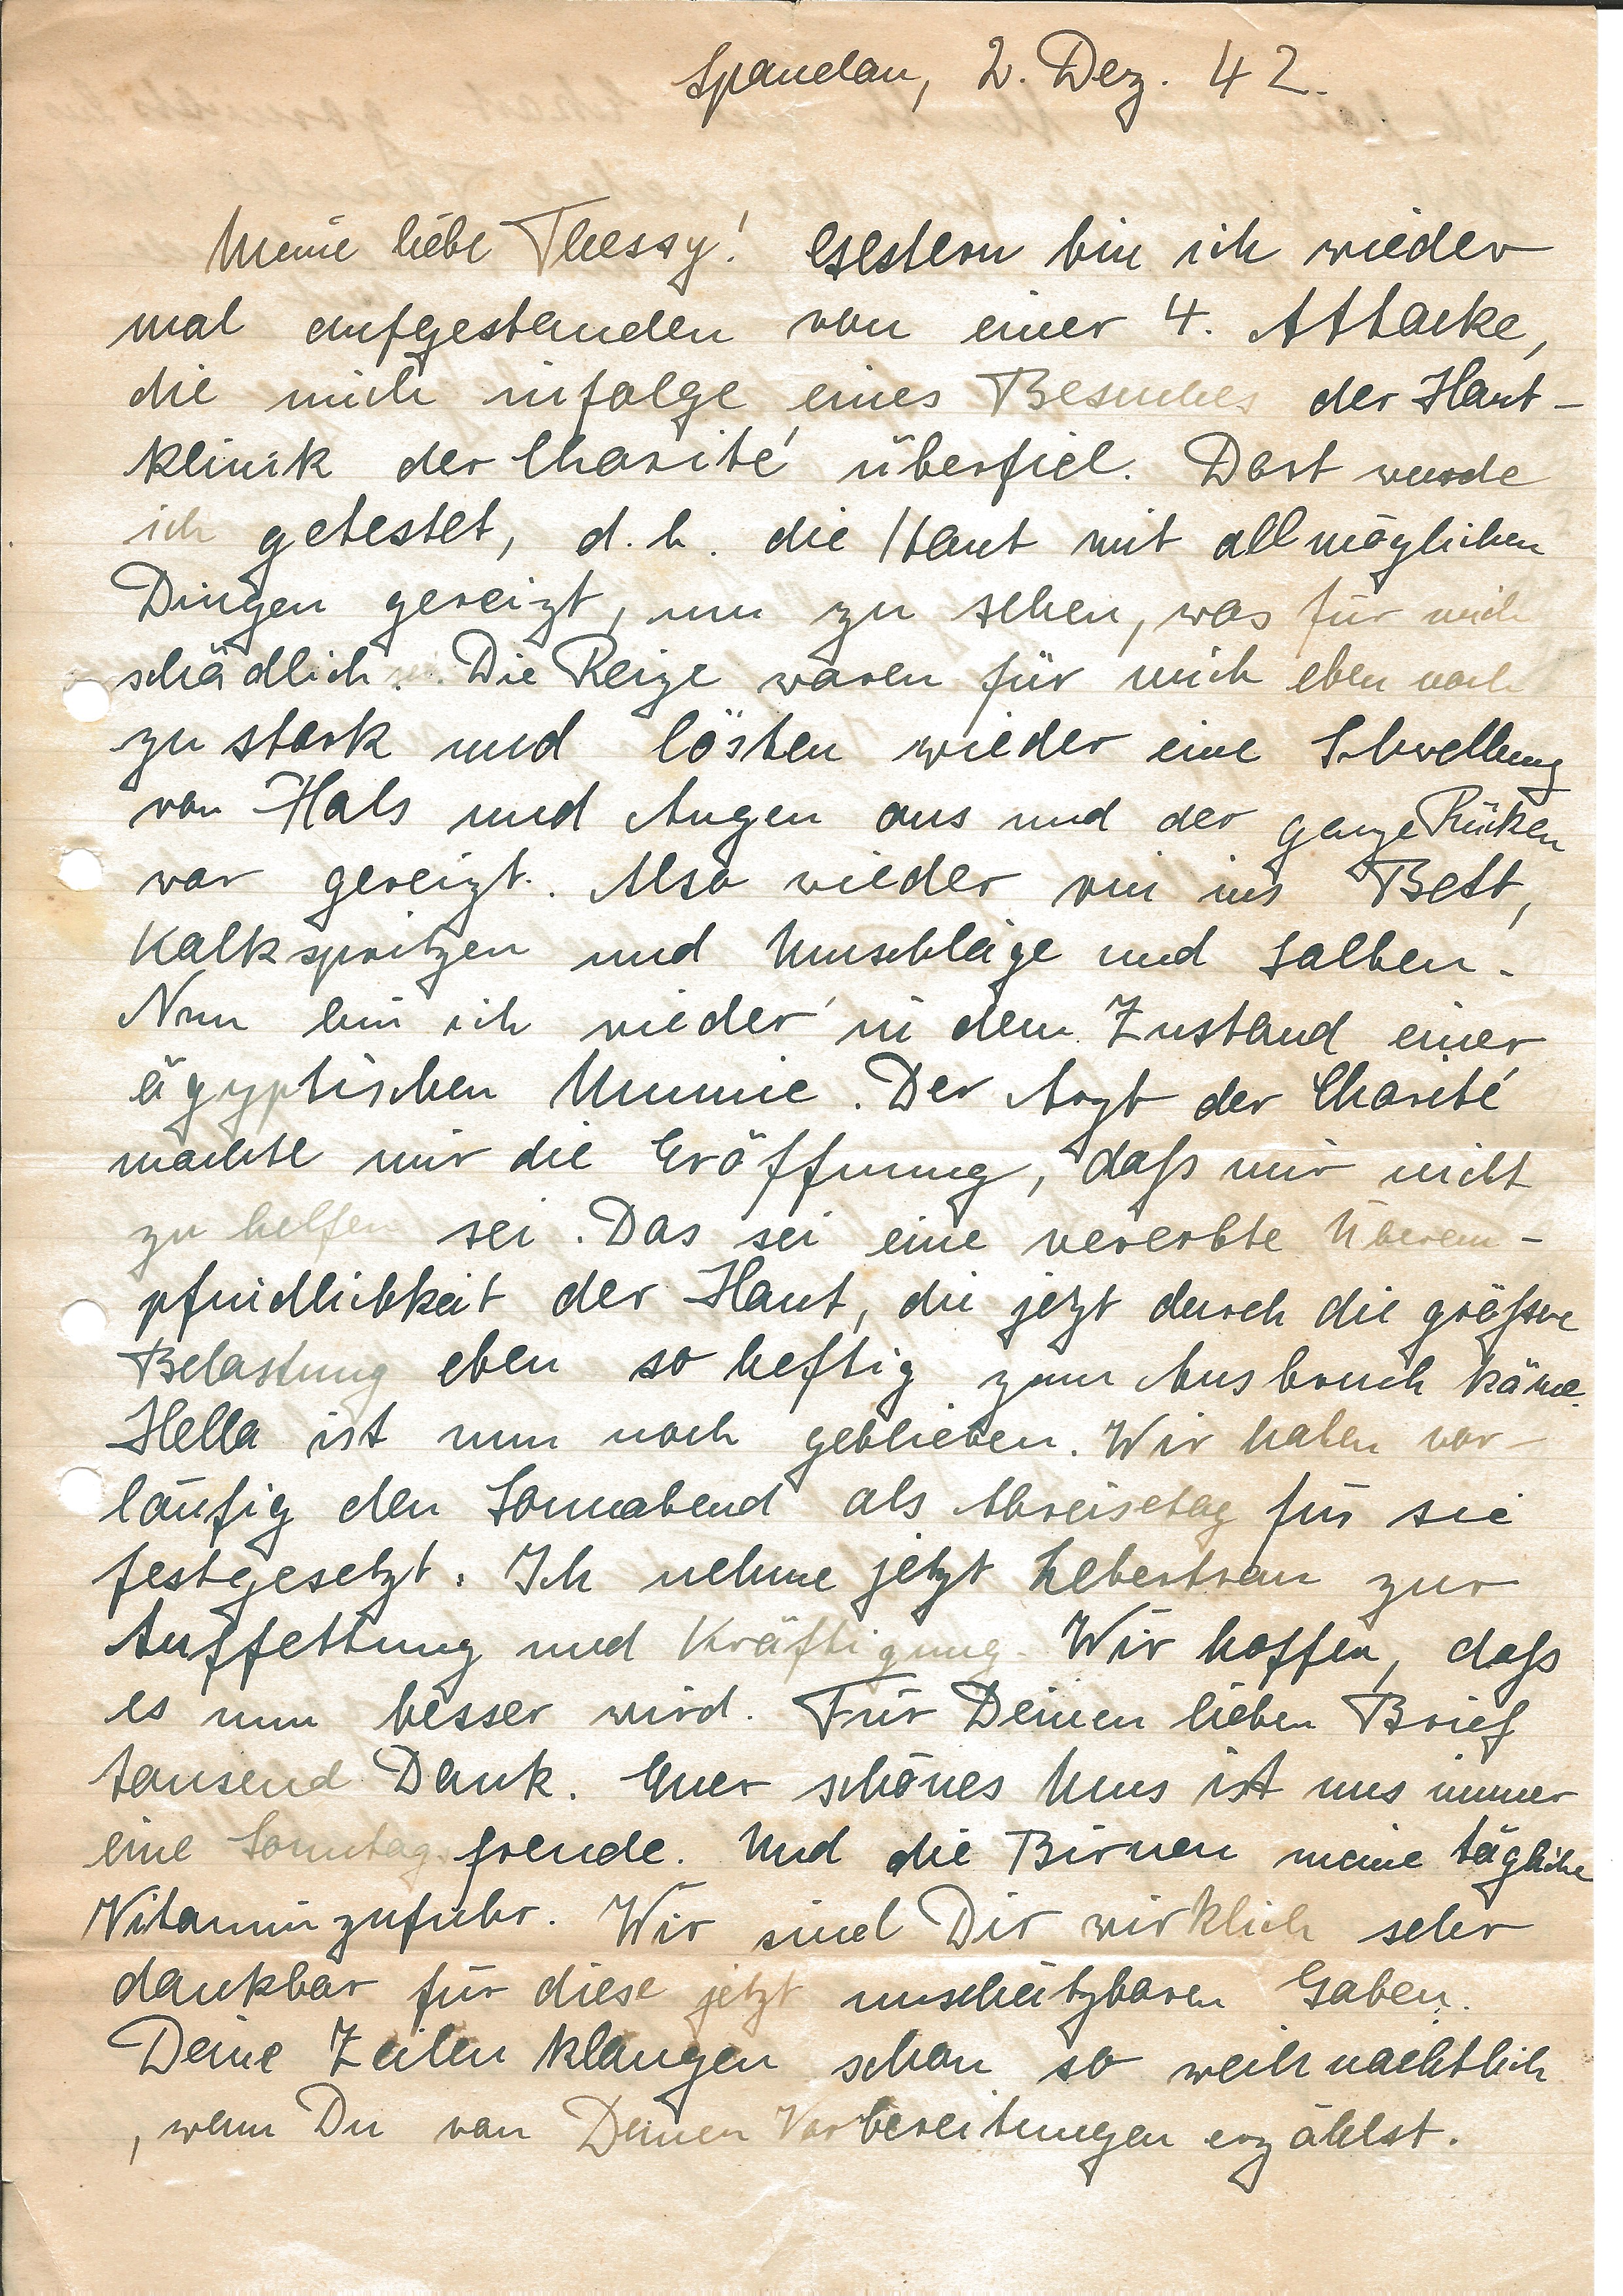 Spandau, 2. Dez. 42.
Meine liebe Thessy! Gestern bin ich wieder
mal aufgestanden von einer 4. Attacke,
die mich infolge eines Besuches der Haut-
klinik der Charité überfiel. Dort wurde
ich getestet, d. h. die Haut mit allmöglichen
Dingen gereizt, um zu sehen, was für mich
schädlich sei. Die Reize waren für mich eben noch
zu stark und lösten wieder eine Schwellung
von Hals und Augen aus und der ganze Rücken
war gereizt. Also wieder rin ins Bett,
Kalkspritzen und Umschläge und Salben.
Nun bin ich wieder in dem Zustand einer
ägyptischen Mumie. Der Arzt der Charité
machte mir die Eröffnung, daß mir nicht
zu helfen sei. Das sei eine vererbte Überem-
pfindlichkeit der Haut, die jetzt durch die größere
Belastung eben so heftig zum Ausbruch käme.
Hella ist nun noch geblieben. Wir haben vor-
läufig den Sonnabend als Abreisetag für sie
festgesetzt. Ich nehme jetzt Lebertran zur
Auffettung und Kräftigung. Wir hoffen, daß
es nun besser wird. Für Deinen lieben Brief
tausend Dank. Euer schönes Mus ist uns immer
eine Sonntagsfreude. Und die Birnen meine tägliche
Vitaminzufuhr. Wir sind Dir wirklich sehr
dankbar für diese jetzt unschätzbaren Gaben.
Deine Zeilen klangen schon so weihnachtlich
, wenn Du von Deinen Vorbereitungen erzählst.